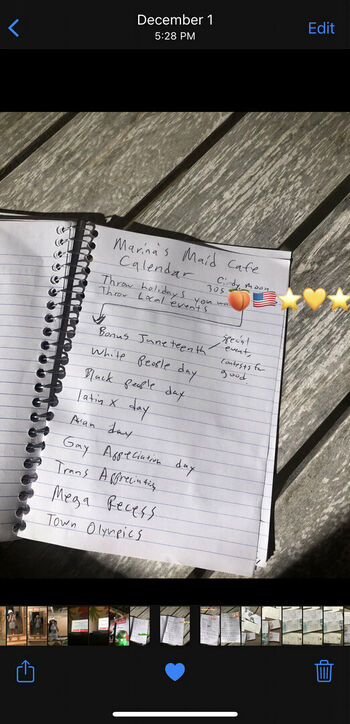 December 1
5:28 PM
Edit
Marina's Maid Cafe
Calendar
Moon
305
Throw holidays you
Throw Local events
Bonus Juneteenth
special
event,
contests for
good
White People day
Black people day
Latin x day
Asian day
Gay Appreciation day
Trans Appreciation
Mega Recess
Town Olympics